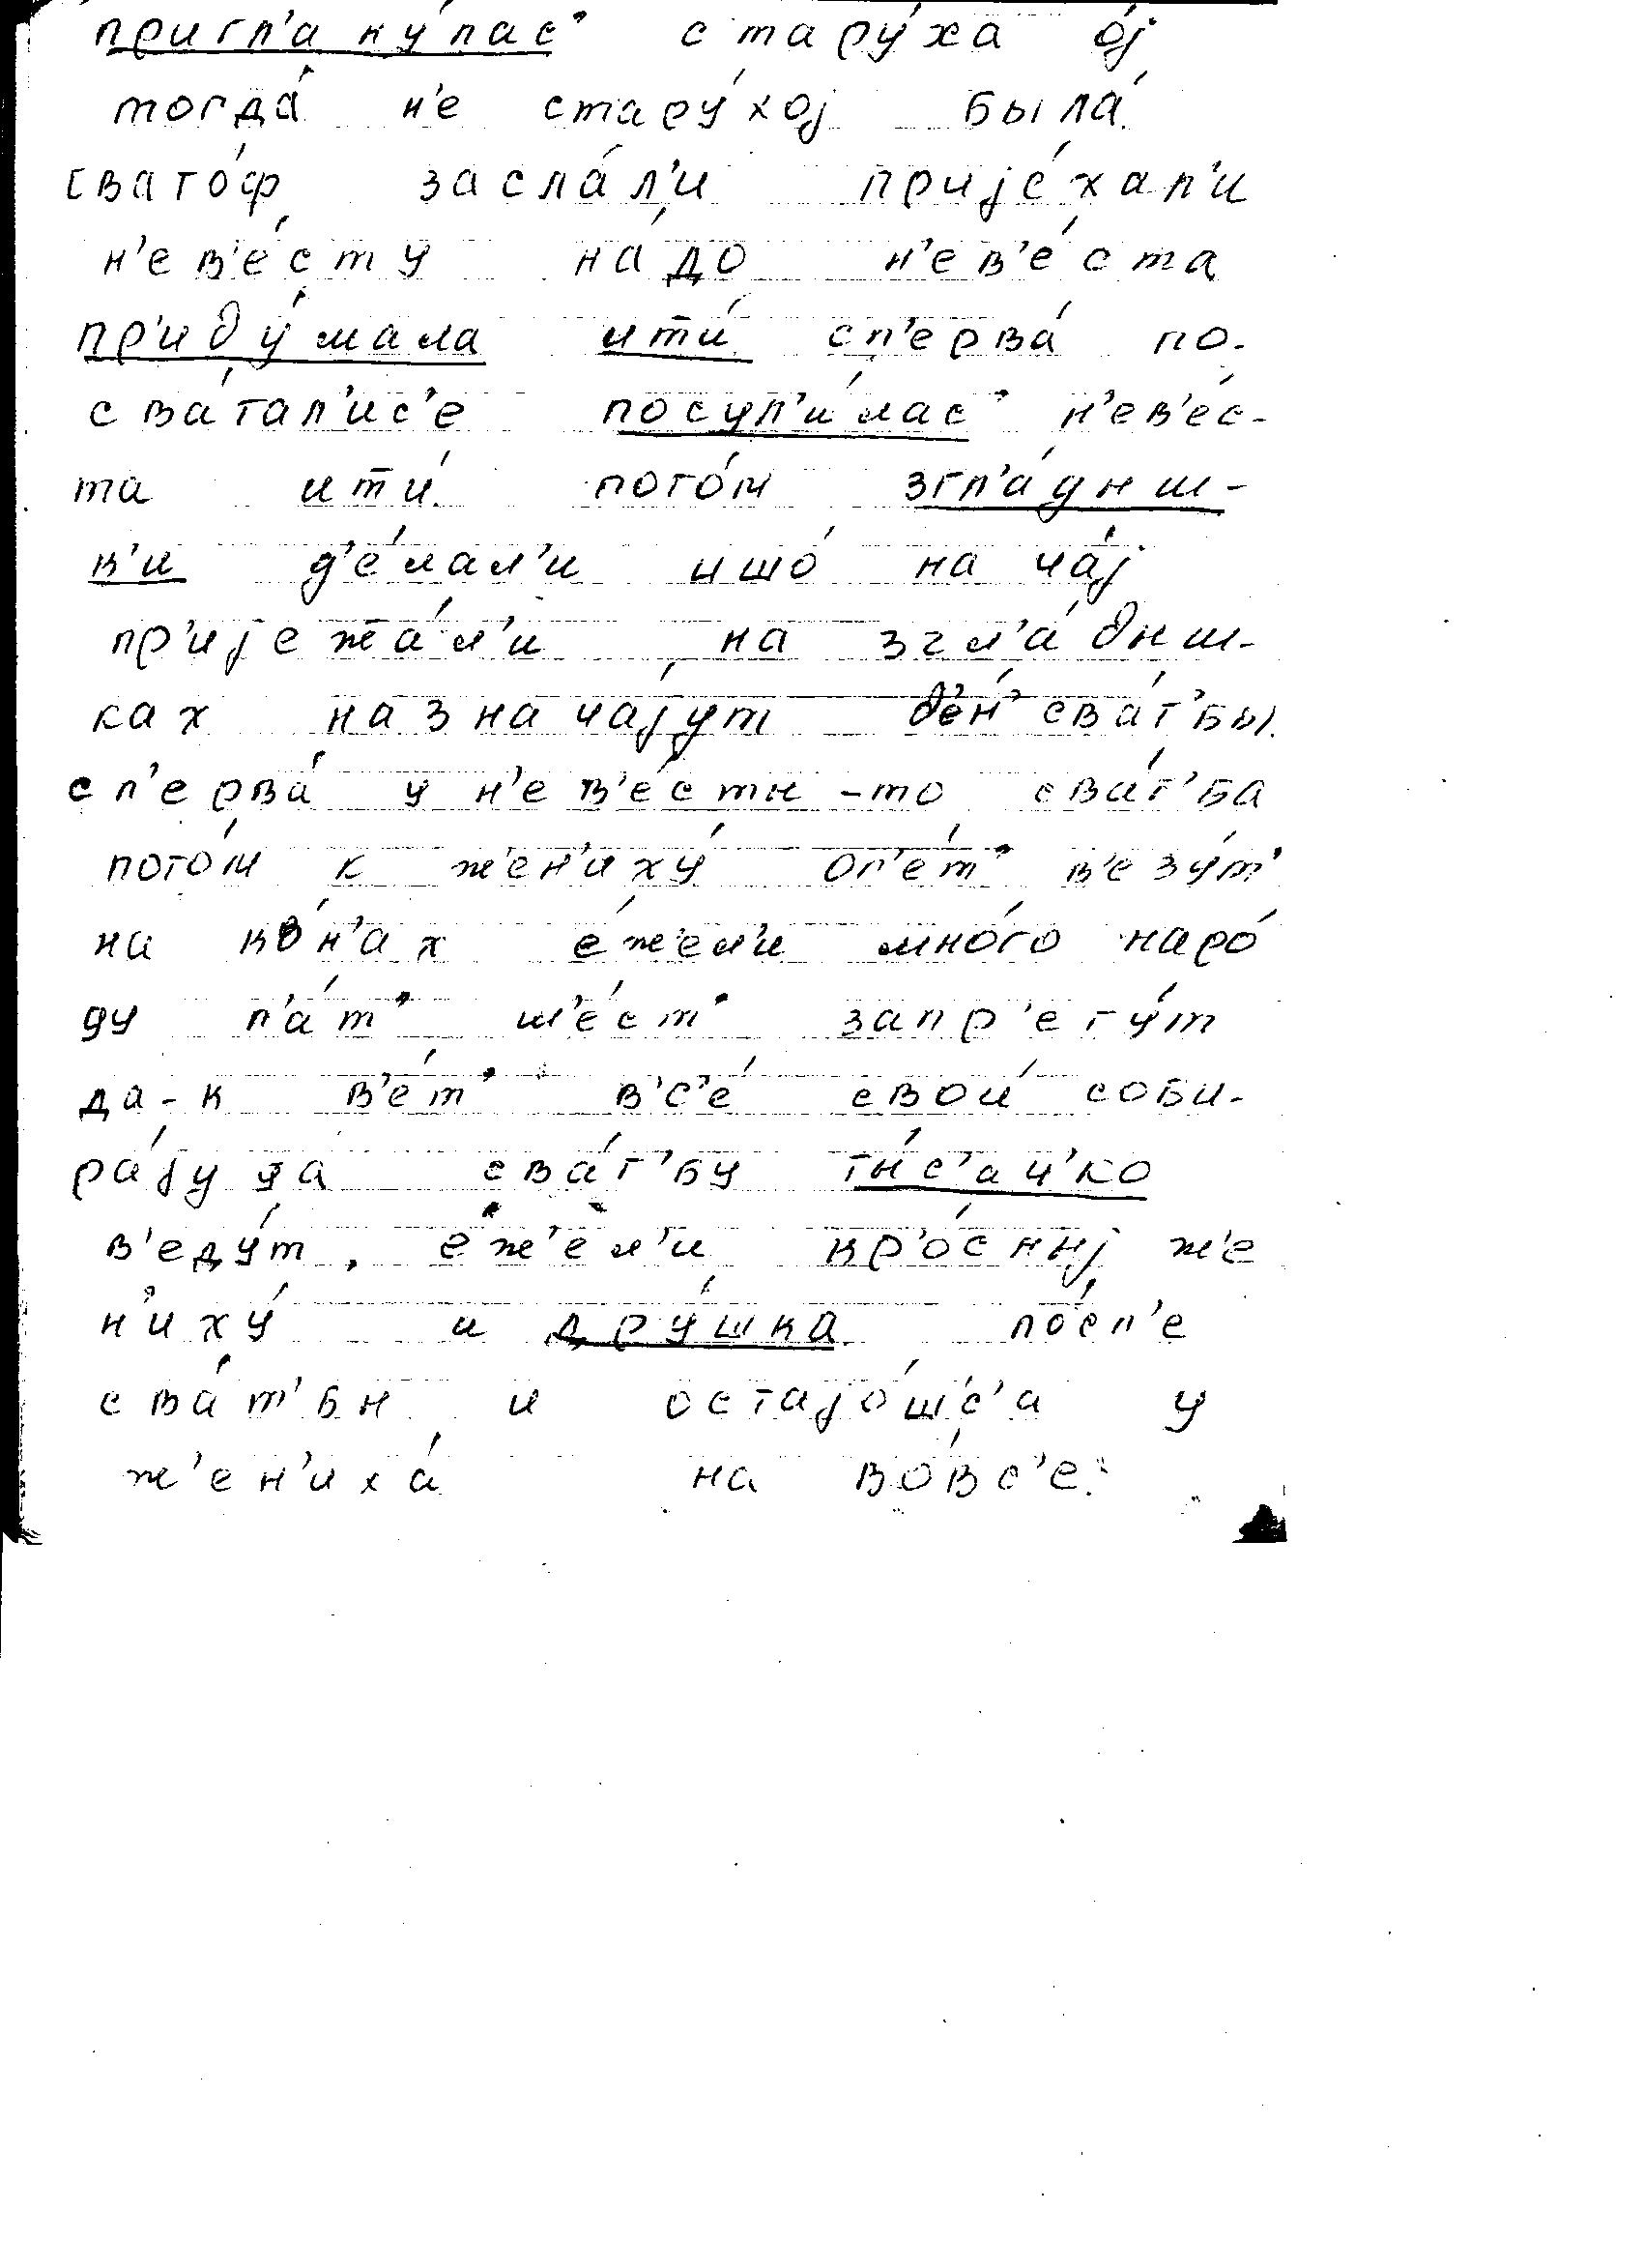 пригл'а ну́лас' стару́ха о́j
тогда́ н'е стару́хоj была́
свато́ф засла́л'и приjе́хал'и
н'ев'е́сту на́до н'ев'е́ста
пр'иду́мала ити́ сп'ерва́ по-
сва́тал'ис'е посул'и́лас' н'ев'е́с-
та ити́ пото́м згл'а́дыш-
к'и д'е́лал'и ишо́ на ча́j
пр'иjежа́л'и на згл'а́дыш-
ках назнача́jут д'е́н' сва́т'бы
сп'ерва́ у н'ев'е́сты-то сва́т'ба
пото́м к жен'иху́ оп'е́т' в'езу́т'
на ко́н'ах е́жел'и мно́го наро́
ду п'а́т' ш'е́ст' запр'егу́т
да-к в'е́т' в'с'е́ свои́ соби-
ра́jуца сва́т'бу ты́с'ач'ко
в'еду́т, е́ж'ел'и кр'о́сныj ж'е
н'иху́ и дру́шка по́сл'е
сва́т'бы и остаjо́шс'а у
ж'ен'иха́ на во́вс'е.